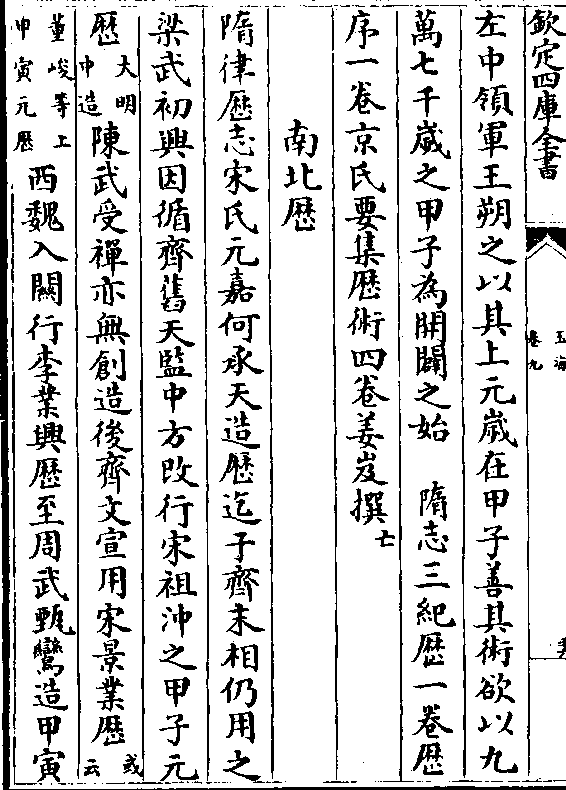 欽定四庫全書
玉海
卷九
左中領軍王朔之以其上元歲在甲子善其術欲以九
萬七千歲之甲子為開闢之始 隋志三紀歷一卷歷
序一卷京氏要集歷術四卷姜岌撰七
南北歷
隋律歷志宋氏元嘉何承天造歷迄于齊末相仍用之
梁武初興因循齊舊天監中方改行宋祖沖之甲子元
歷大明中造陳武受禪亦無創造後齊文宣用宋景業歷或云
董峻等上甲寅元歷西魏入關行李業興歷至周武甄鸞造甲寅